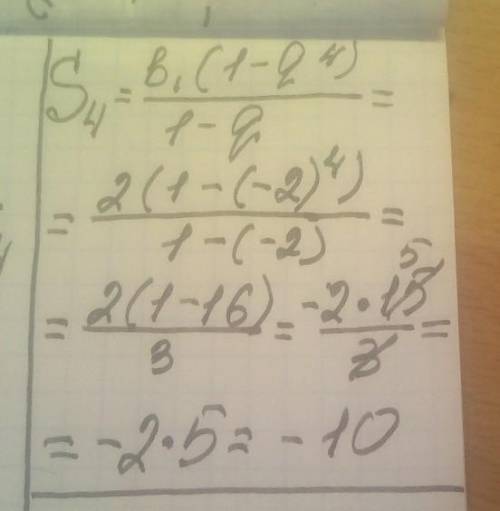 S₄ = b₁(1-q⁴)/1-q =
= 2(1-(-2)⁴)/1-(-2) =
= 2(1-16)/3 = -2·15/3 = 5
= -2·5 = -10